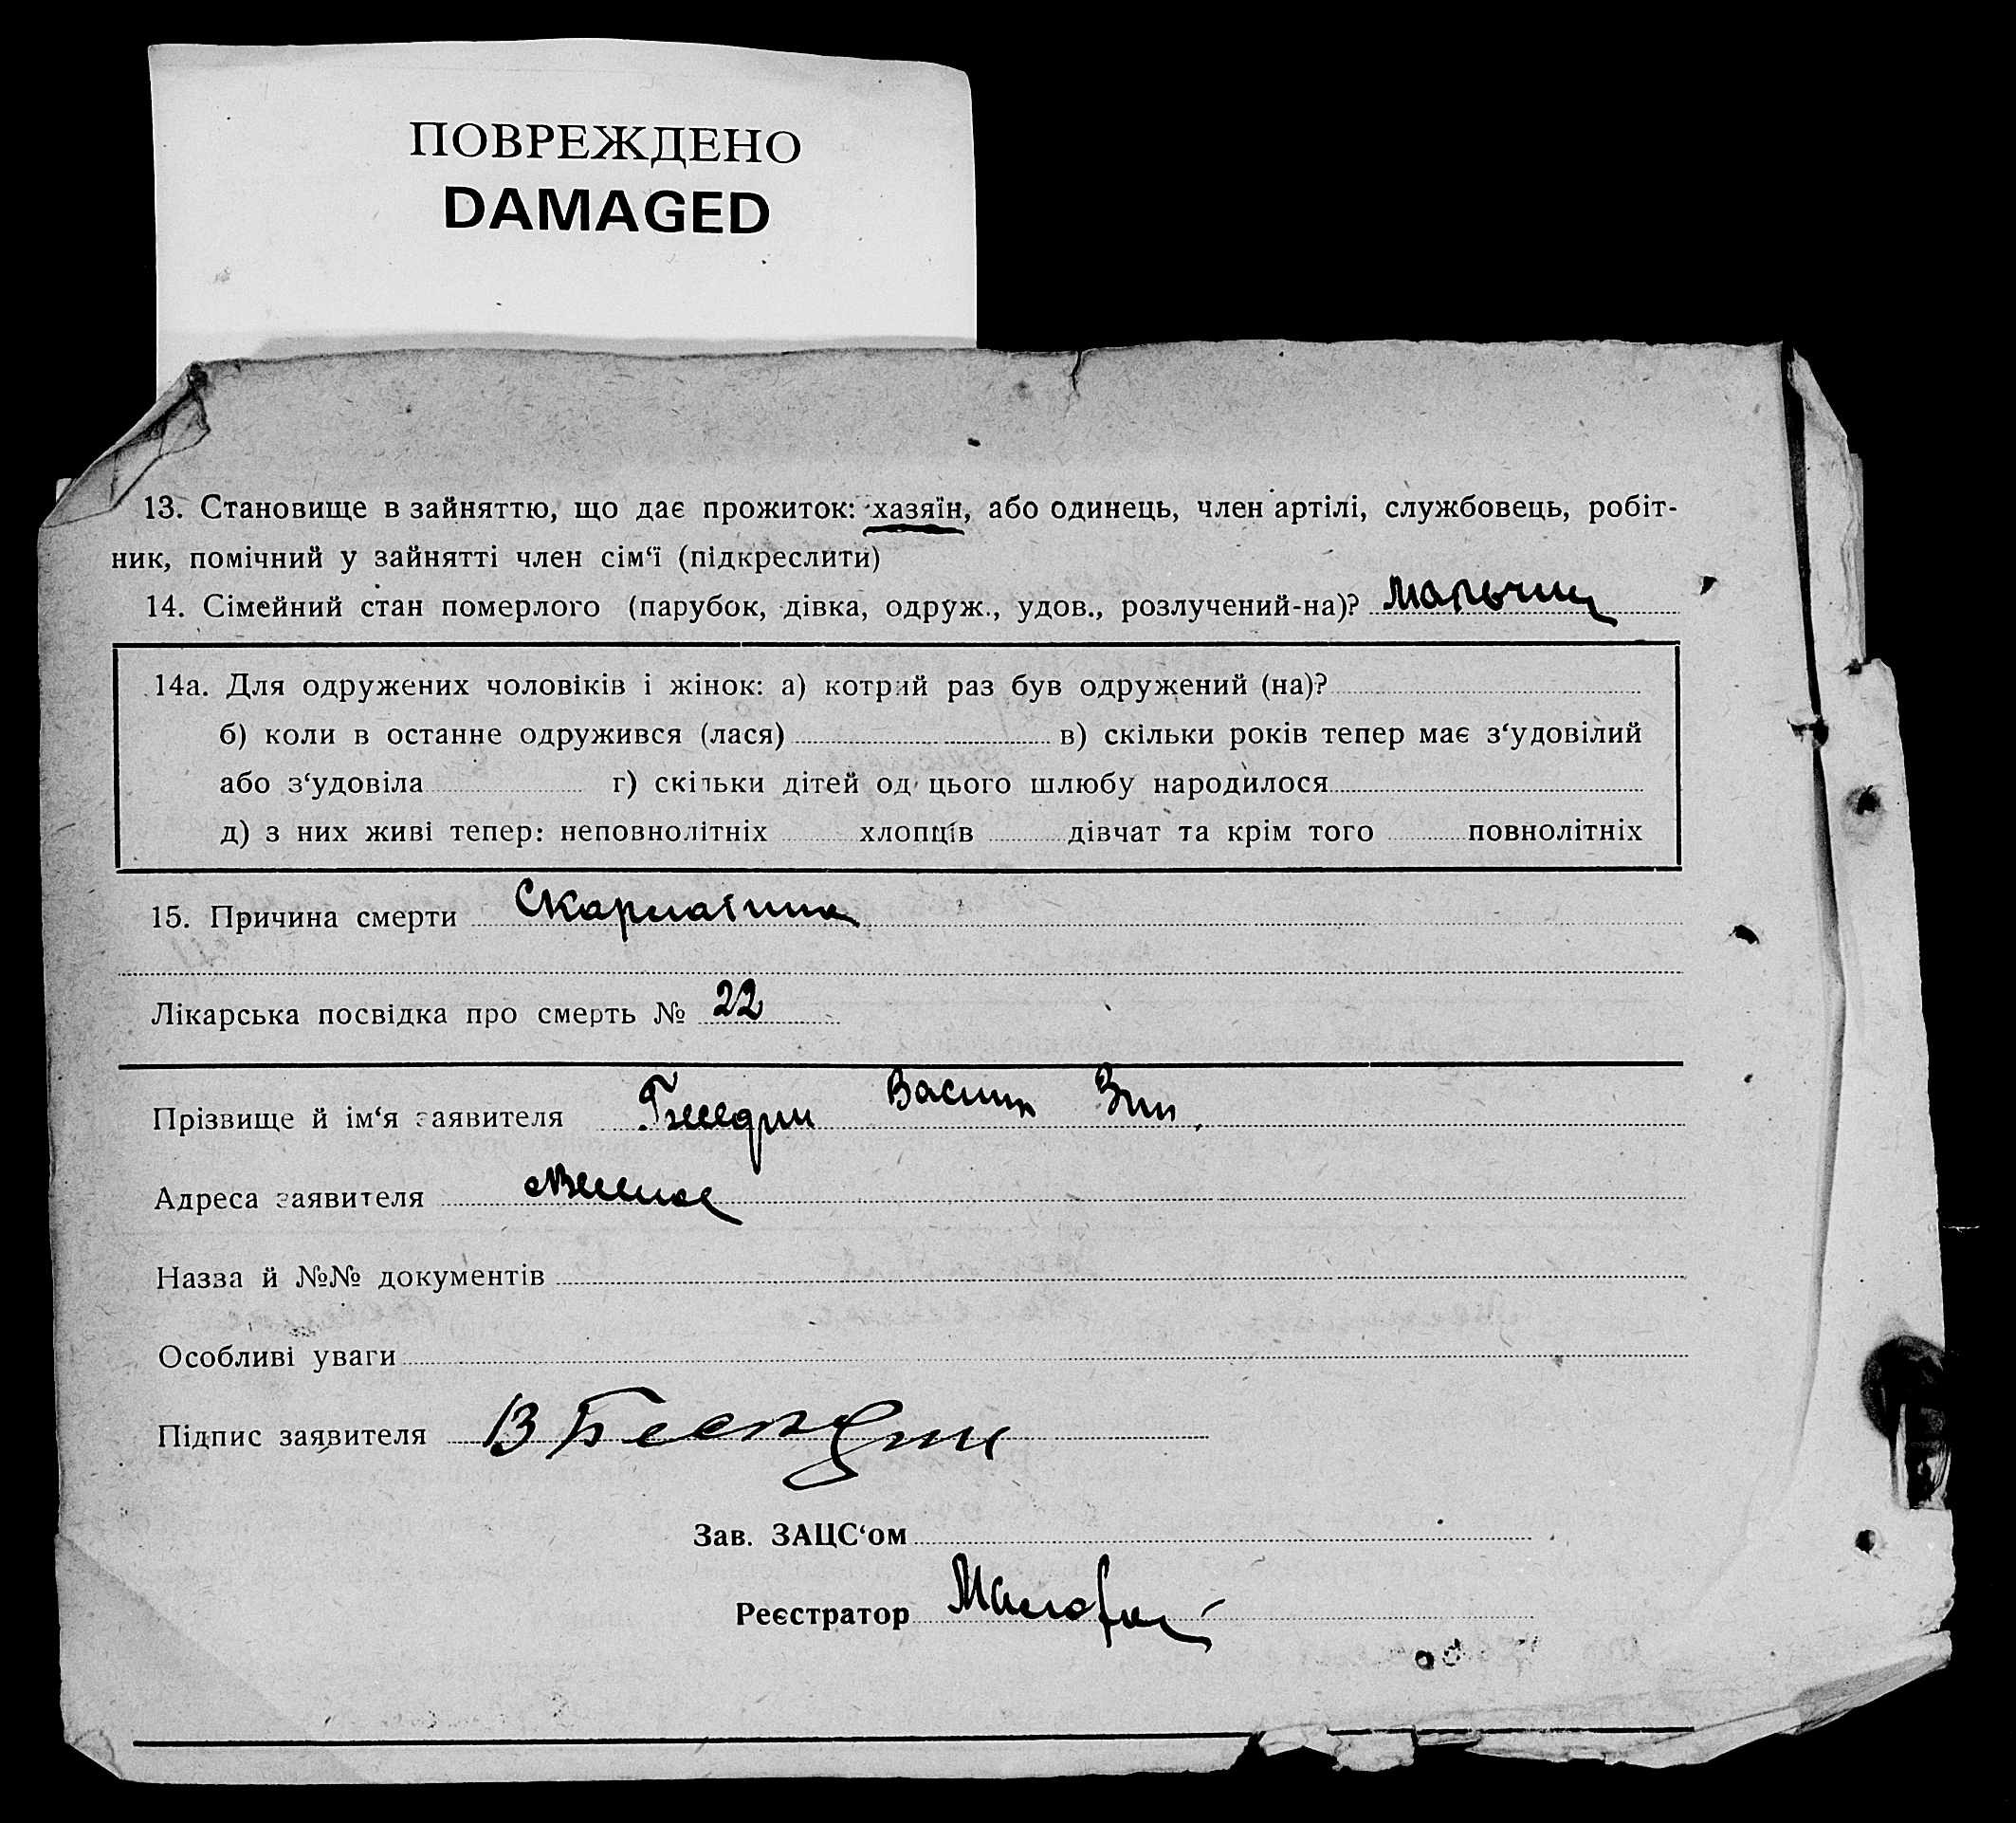 ПОВРЕЖДЕНО
DAMAGED
13. Становище в зайняттю, що дає прожиток: хазяїн, або одинець, член артілі, службовець, робіт-
ник, помічний у зайнятті член сім‘ї (підкреслити)
14. Сімейний стан померлого (парубок, дівка, одруж., удов., розлучений-на)?
14а. Для одружених чоловіків і жінок: а) котрий раз був одружений (на)?
б) коли в останне одружився (лася) в) скільки років тепер має з‘удовілий
або з‘удовіла г) скільки дітей од цього шлюбу народилося
д) з них живі тепер: неповнолітніх хлопців дівчат та крім того повнолітніх
15. Причина смерти Скарлатина
Лікарська посвідка про смерть № 22
Прізвище й ім‘я заявителя
Адреса заявителя
Назва й №№ документів
Особливі уваги
Підпис заявителя В
Зав. ЗАЦС‘ом
Реєстратор